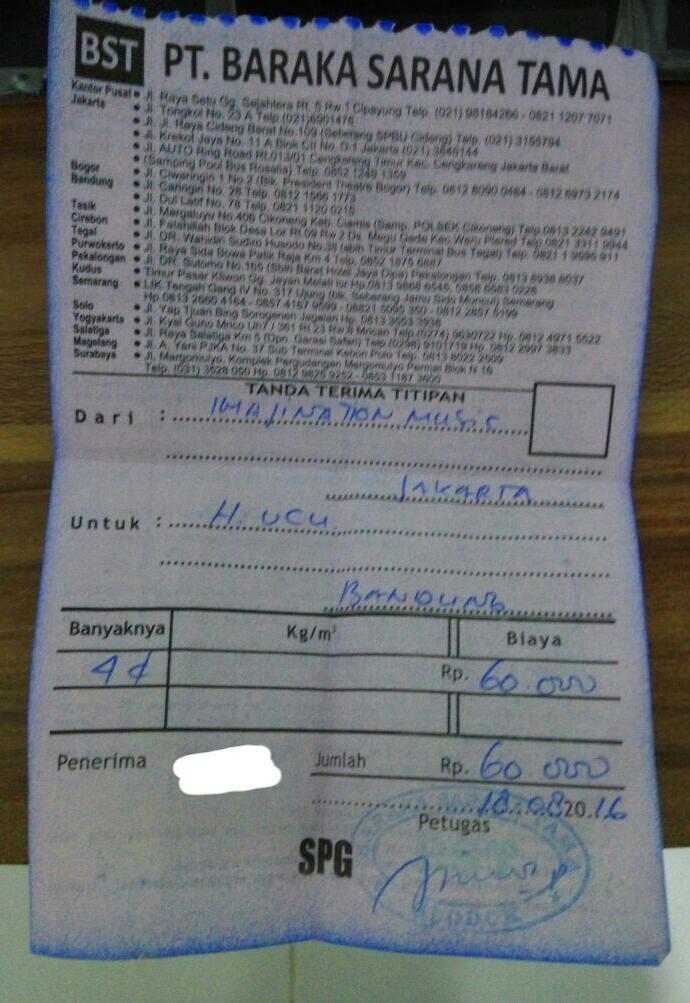 BST PT. BARAKA SARANA TAMA
Kantor Pusat • Jl. Raya Setu Gg. Sejahtera Rt. 5 Rw 1 Cipayung Telp. (021) 98184266 - 0821 1207 7071
Jakarta • Jl. Tongkol No. 23 A Telp (021)6901476
• Jl. Jl. Raya Cideng Barat No.109 (Seberang SPBU Cideng) Telp. (021) 3155794
• Jl. Krekot Jaya No. 11 A Blok CII No. D.1 Jakarta (021) 3846144
• Jl. AUTO Ring Road Rt.013/01 Cengkareng Timur Kec. Cengkareng Jakarta Barat
(Samping Pool Bus Rosalia) Telp. 0852 1249 1359
Bogor • Jl. Ciwaringin 1 No.2 (Blk. President Theatre Bogor) Telp. 0812 8090 0484 - 0812 6973 2174
Bandung • Jl. Caringin No. 28 Telp. 0812 1566 1773
• Jl. Dul Latif No. 78 Telp. 0821 1120 0215
Tasik • Jl. Margaluyu No.406 Cikoneng Kab. Ciamis (Samp. POLSEK Cikoneng) Telp.0813 2242 9491
Cirebon • Jl. Fatahillah Blok Desa Lor Rt.09 Rw 2 Ds. Megu Gede Kec Weru Plered Telp.0821 3311 9944
Tegal • Jl. DR. Wahidin Sudiro Husodo No.38 Timur Terminal Bus Tegal) Telp. 0821 1
Purwokerto • Jl. Raya Sida Bowa Patik Raja Km 4 Telp. 0852 1875 6887
Pekalongan • Jl. DR. Sutomo No.165 (Sblh Barat Hotel Jaya Dipa) Pekalongan Telp. 0813 8938 8037
Kudus • Timur Pasar Kliwon Gg. Jayan Melati
Semarang • LIK Tengah Gang IV No. 317 Ujung (blk. Seberang Jamu Sido Muncul) Semarang
Hp.0813 2666 4164 - 0857 4167 9599
Solo • Jl. Yap Tjuan Bing Sorogenen Jagalan Hp. 0813
Yogyakarta • Jl. Kyai Guno Mrico / 361 Rt.23 Rw.8 Telp.(0274) 9630722 Hp. 0812 4971 5522
Salatiga • Jl. Raya Salatiga Km 5 (Dpn. Garasi Safari) Telp.(0298) 9101719 Hp. 0812 2997 3833
Magelang • Jl. A. Yani PJKA No. 37 Sub Terminal Kebon Polo Telp. 0813 8022 2509
Surabaya • Jl. Margomulyo. Komplek Pergudangan Margomulyo Permai Blok N 16
Telp. (031) Hp. 0812 9825 9252 - 0853 1187 3600
TANDA TERIMA TITIPAN
Dari : IMAJINATION MUSIC
JAKARTA
Untuk : H. UCU
BANDUNG
Banyaknya Kg/m³ Biaya
4 Rp. 60.000
Penerima Jumlah Rp. 60.000
18.08 20.16
Petugas
SPG